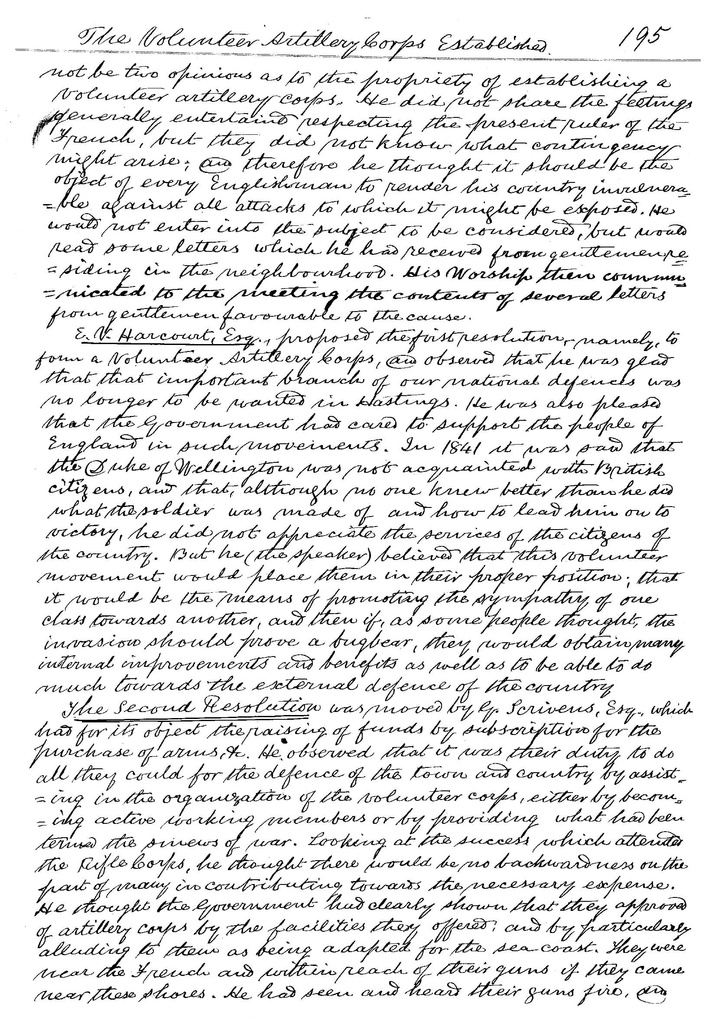 The Volunteer Artillery Corps Established. 195
not be two opinions as to the propriety of establishing a
volunteer artillery corps. He did not share the feelings
generally entertaind respecting the present ruler of the
French, but they did not know what contingency
might arise; and therefore he thought it should be the
object of every Englishman to render his country invulnera=
=ble against all attacks to which it might be exposed. He
would not enter into the subject to be considered, but would
read some letters which he had received from gentlemen re=
=siding in the neighbourhood. His Worship then commu=
=nicated to the meeting the contents of several letters
from gentlemen favourable to the cause.
E. V. Harcourt, Esq., proposed the first resolution, namely, to
form a Volunteer Artillery Corps, and observed that he was glad
that that important branch of our national defences was
no longer to be wanted in Hastings. He was also pleased
that the Government had cared to support the people of
England in such movements. In 1841 it was said that
the Duke of Wellington was not acquainted with British
citizens, and that, although no one knew better than he did
what the soldier was made of and how to lead him on to
victory, he did not appreciate the services of the citizens of
the country. But he (the speaker) believed that this volunteer
movement would place them in their proper position; that
it would be the means of promoting the sympathy of one
class towards another, and then if, as some people thought, the
invasion should prove a bugbear, they would obtain many
internal improvements and benefits as well as to be able to do
much towards the external defence of the country
The Second Resolution was moved by G. Scrivens, Esq., which
had for its object the raising of funds by subscription for the
purchase of arms, &c. He observed that it was their duty to do
all they could for the defence of the town and country by assist=
=ing in the organization of the volunteer corps, either by becom=
=ing active working members or by providing what had been
termed the sinews of war. Looking at the success which attended
the Rifle Corps, he thought there would be no backwardness on the
part of many in contributing towards the necessary expense.
He thought the Government had clearly shown that they approved
of artillery corps by the facilities they offered; and by particularly
alluding to them as being adapted for the sea-coast. They were
near the French and within reach of their guns if they came
near these shores. He had seen and heard their guns fire, and